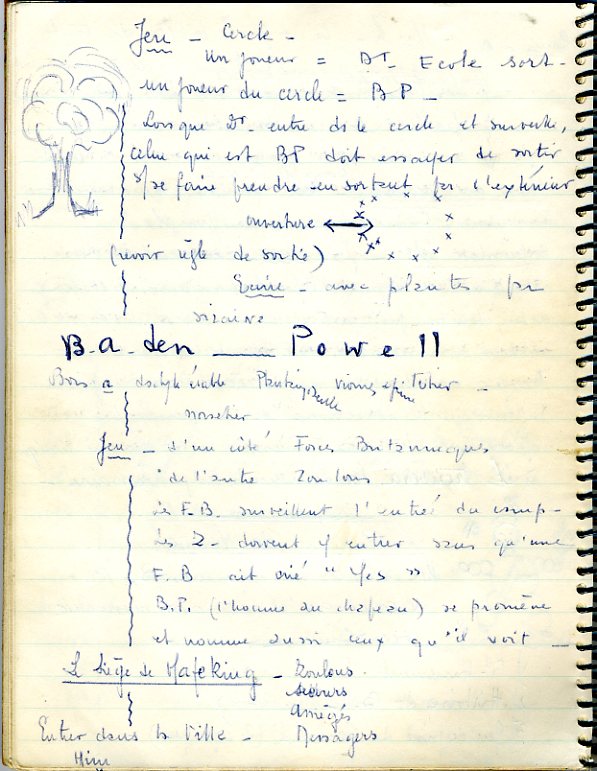 Jeu - Cercle -
Un joueur = Dr Ecole sort -
un joueur du cercle = BP -
Lorsque Dr entre ds le cercle et surveille,
celui qui est BP doit essayer de sortir
s/se faire prendre en sortant par l'extérieur
ouverture
(revoir règle de sortie)
Ecrire - avec plantes par
sizaine
B.a. den ___ Powell
Bois a dactyle érable Plantain viorne épine
noisetier
Jeu - d'un côté Forces Britanniques
de l'autre Zoulous
Les F.B. surveillent l'entrée du camp -
Les Z - doivent y entrer sans qu'une
F.B ait crié "Yes"
B.P. (l'homme au chapeau) se promène
et nomme aussi ceux qu'il voit -
L Siège de Mafeking - Zoulous
secours
assiégés
Entrer dans la Ville - Messagers